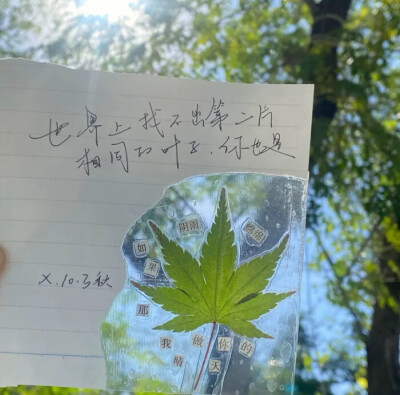 世界上找不出第二片
相同的叶子.你也是
X.10.3秋
如果
阴雨
那
我做你的
晴天